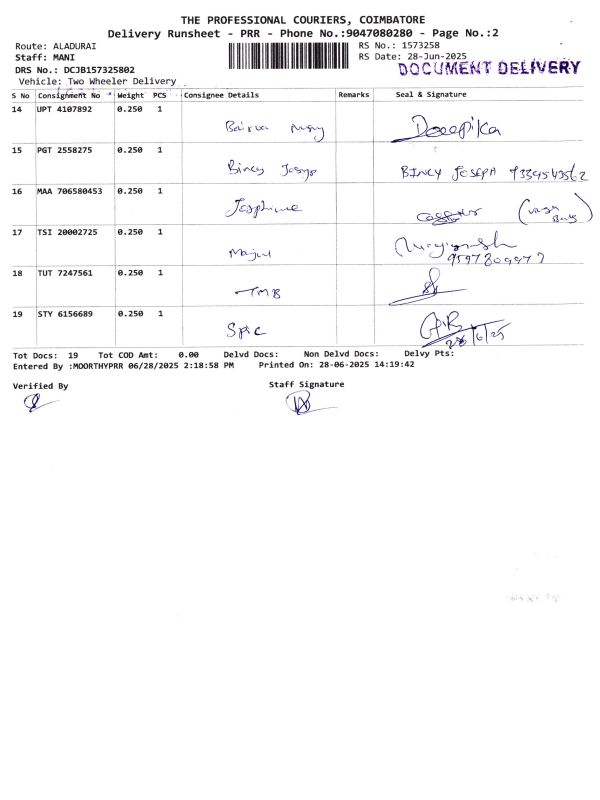 THE PROFESSIONAL COURIERS, COIMBATORE
Delivery Runsheet - PRR - Phone No.:9047080280 - Page No.:2
Route: ALADURAI
RS No.: 1573258
Staff: MANI
RS Date: 28-Jun-2025
DRS No.: DCJB157325802
DOCUMENT DELIVERY
Vehicle: Two Wheeler Delivery
S No Consignment No Weight PCS Consignee Details Remarks Seal & Signature
14 UPT 4107892 0.250 1
Deeepika
15 PGT 2558275 0.250 1
Bincy BINCY JOSEPH 9334543562
16 MAA 706580453 0.250 1
Josphine
17 TSI 20002725 0.250 1
18 TUT 7247561 0.250 1
TMB
19 STY 6156689 0.250 1
Spic
28/6/25
Tot Docs: 19 Tot COD Amt: 0.00 Delvd Docs: Non Delvd Docs: Delvy Pts:
Entered By :MOORTHYPRR 06/28/2025 2:18:58 PM Printed On: 28-06-2025 14:19:42
Verified By Staff Signature